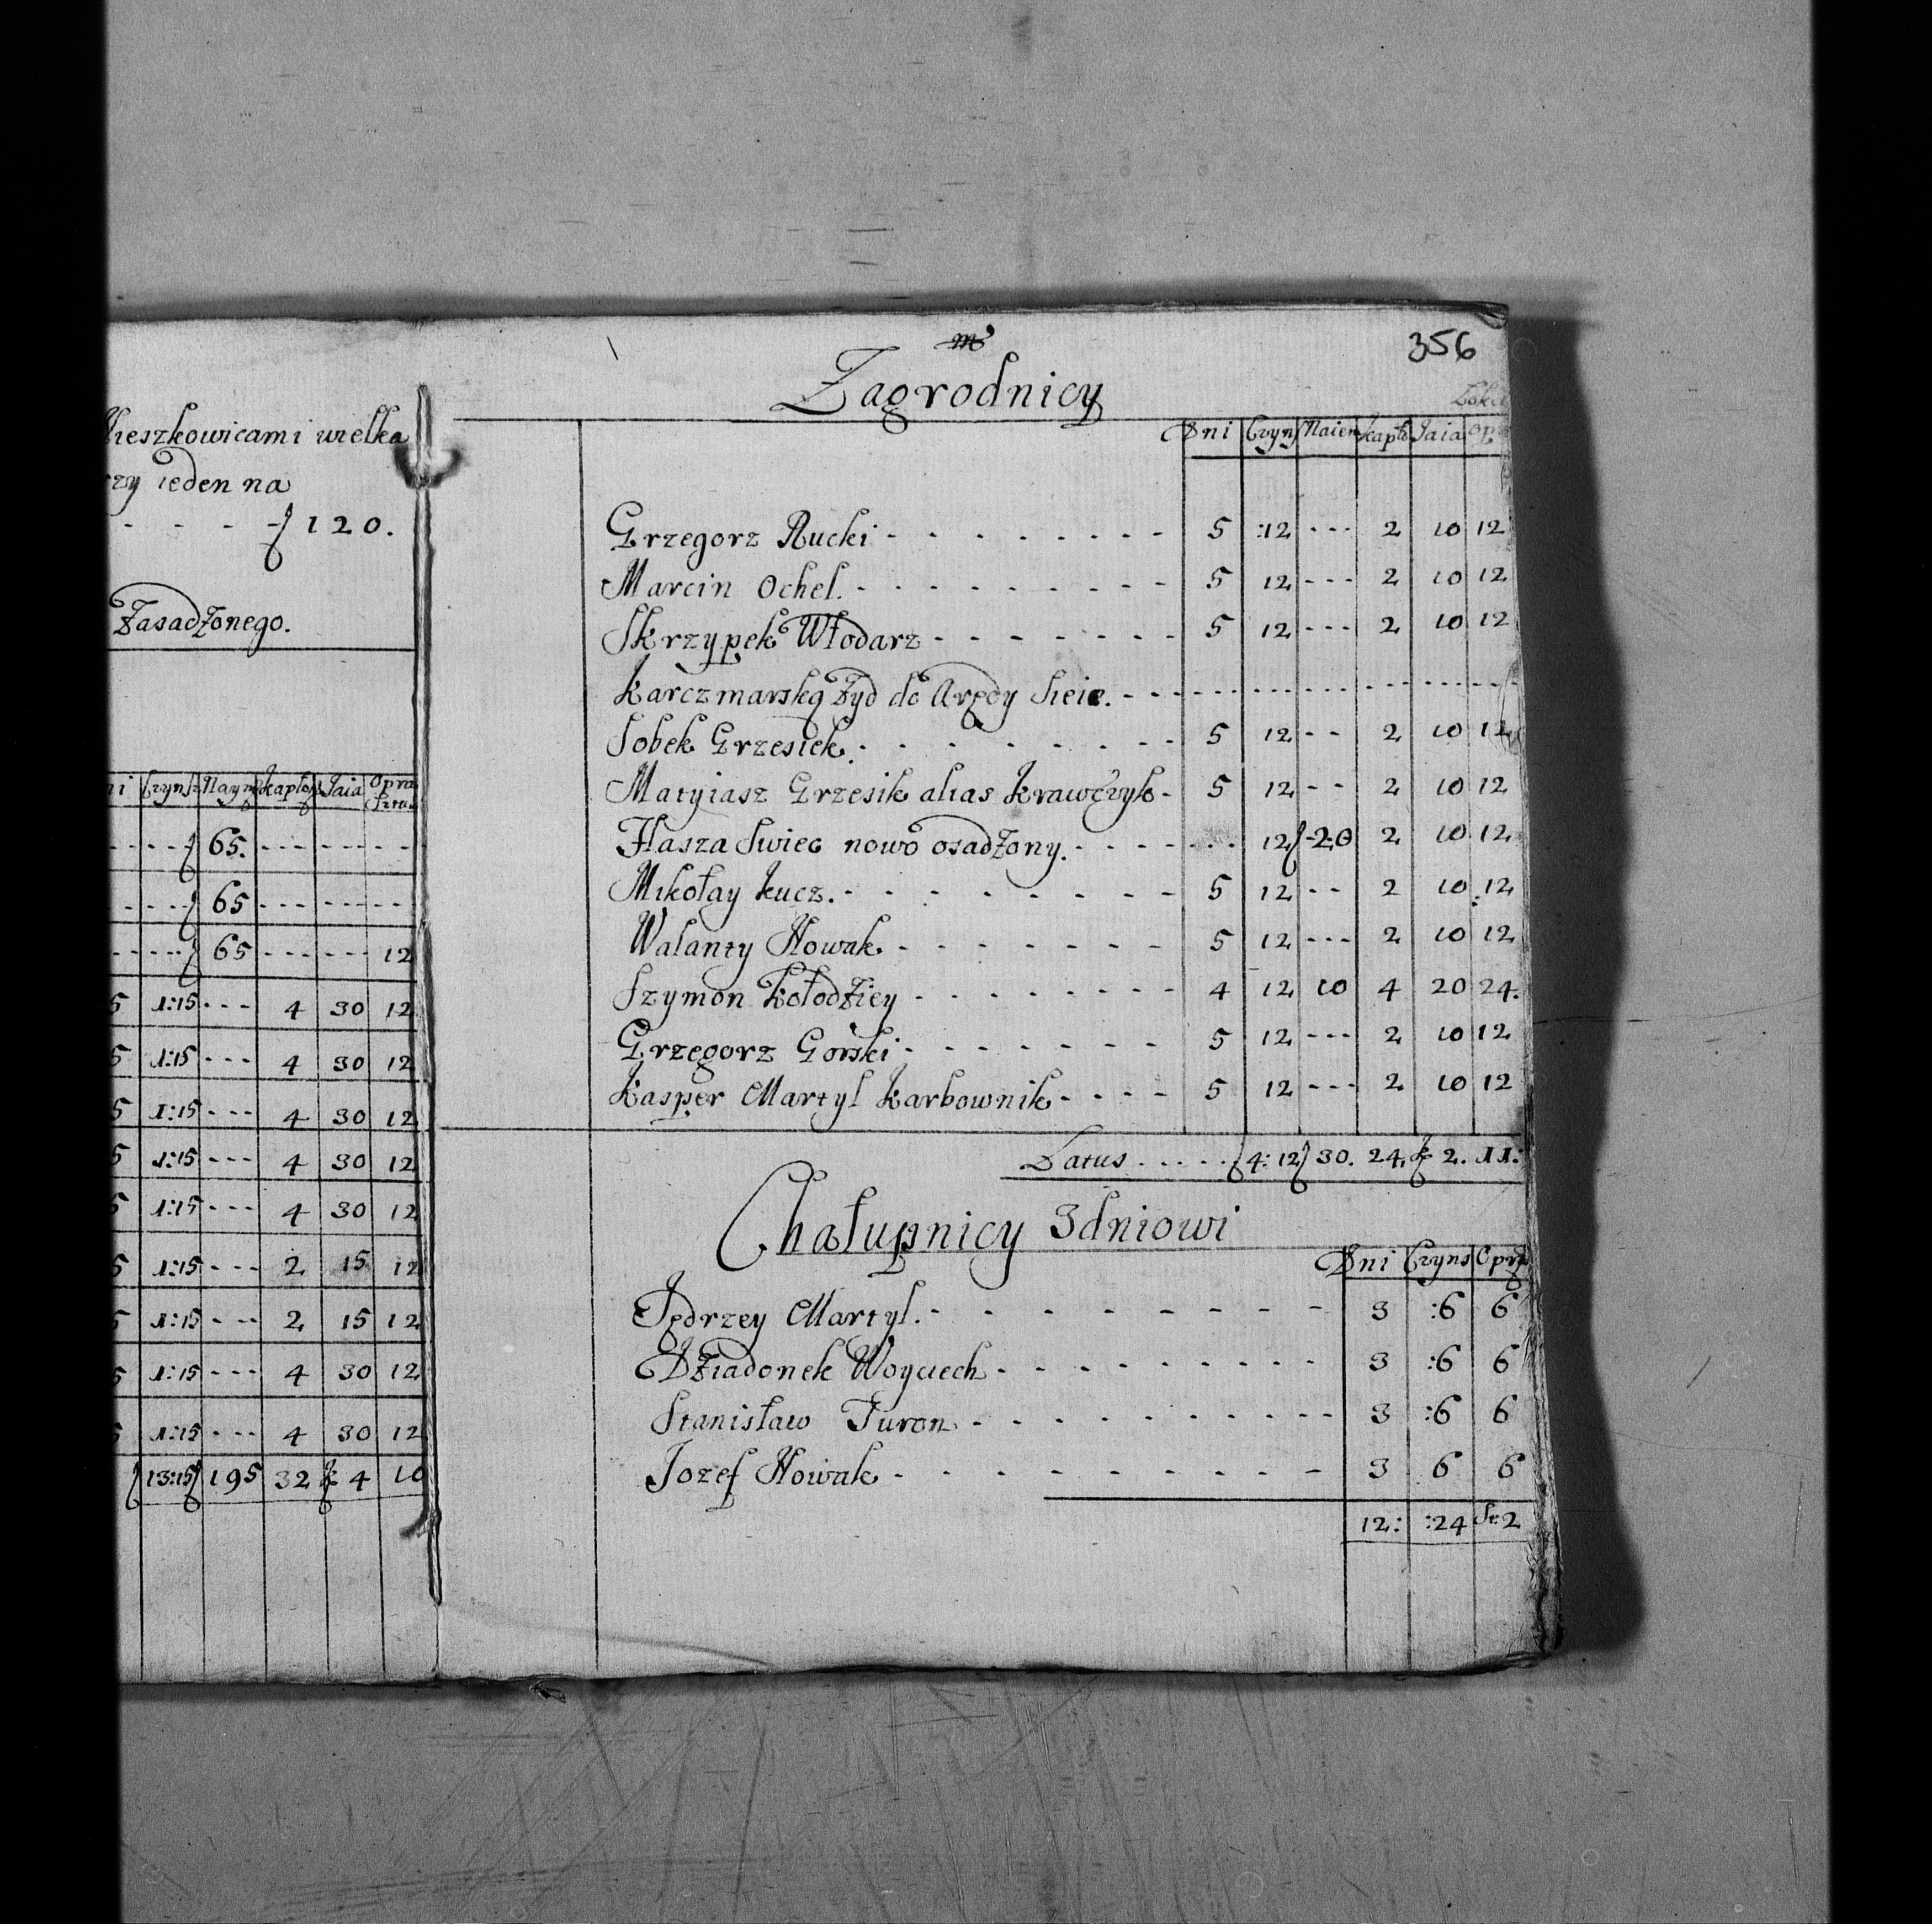 Mieszkowicami wielka
rzy ieden na
- - - - f 120.
Zasadzonego.
ni Czynsz Naym kapło Jaia Opra
Sztu
- - - - f 65. - - - - - - - -
- - - f 65 - - - - - - - -
- - - - f 65 - - - - - - 12
5 1:15 - - - 4 30 12
5 1:15 - - - 4 30 12
5 1:15 - - - 4 30 12
5 1:15 - - - 4 30 12
5 1:15 - - - 4 30 12
5 1:15 - - - 2 15 12
5 1:15 - - - 2 15 12
5 1:15 - - - 4 30 12
5 1:15 - - - 4 30 12
f 13:15 f 195 32 k 4 10
356
Zagrodnicy
Dni Czyns Naiem kapło Jaia Op
Grzegorz Rucki - - - - - - - - 5 :12 - - - 2 10 12
Marcin Ochel. - - - - - - - - - 5 12 - - - 2 10 12
Skrzypek Włodarz - - - - - - - 5 12 - - - 2 10 12
Karczmarską Żyd do Arędy sieie. - - - - - - - - - - - - - - -
Sobek Grzesiek. - - - - - - - - 5 12 - - 2 10 12
Matyiasz Grzesik alias Krawczyk - 5 12 - - 2 10 12
Hasza Swiec nowo osadzony. - - - - - - 12 f -20 2 10 12
Mikołay Kucz. - - - - - - - - 5 12 - - 2 10 :12
Walanty Nowak - - - - - - - 5 12 - - - 2 10 12
Szymon Kołodziey - - - - - - - - 4 12 10 4 20 24.
Grzegorz Gorski - - - - - - - 5 12 - - - 2 10 12
Kasper Martyl Karbownik - - - - 5 12 - - - 2 10 12
Latus . . . . . f 4:12 f 30. 24. k 2. 11:
Chałupnicy 3dniowi
Dni Czyns Opra
Jędrzey Martyl. - - - - - - - - 3 :6 6
Dziadonek Woyciech - - - - - - - - - 3 :6 6
Stanisław Turon - - - - - - - - - - 3 :6 6
Jozef Nowak - - - - - - - - - 3 6 6
12: :24 St: 2